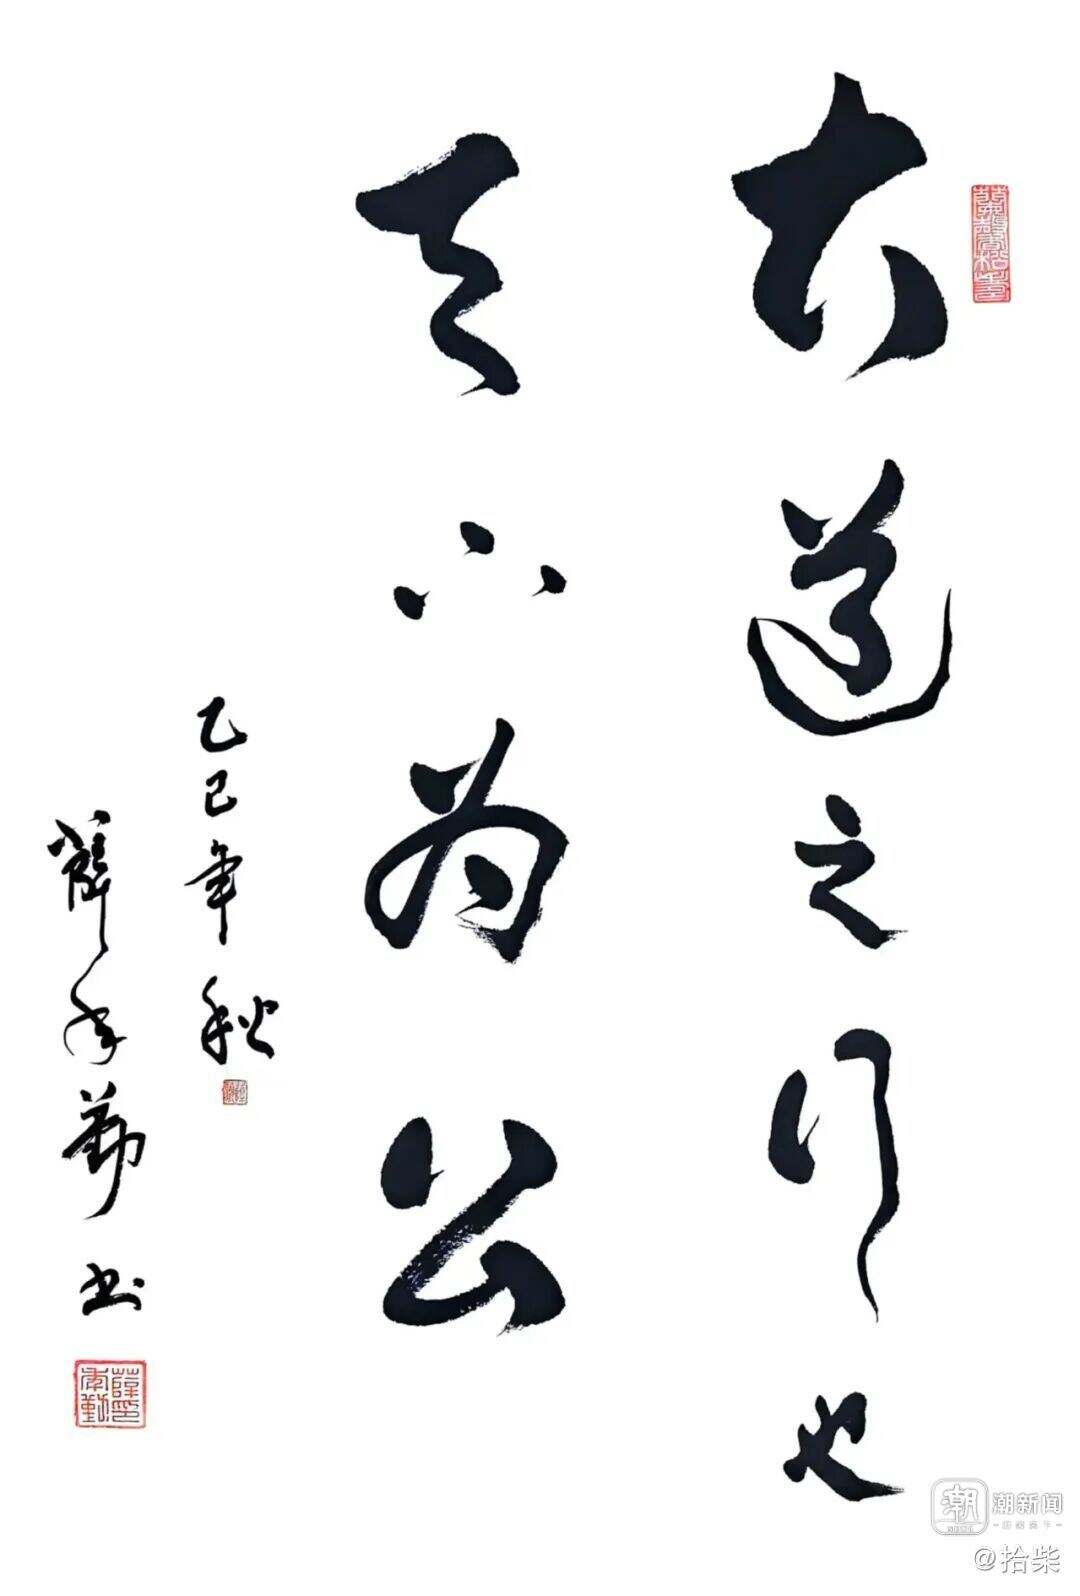 大道之行也
天下为公
乙巳年秋
薛年勤书
潮新闻
@拾柴